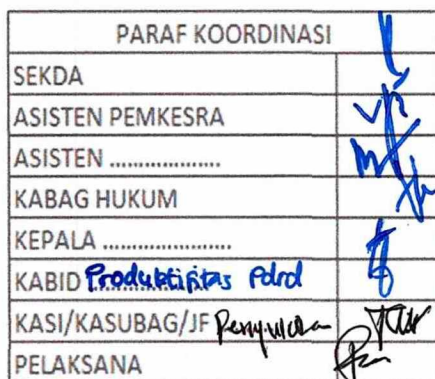 PARAF KOORDINASI
SEKDA
ASISTEN PEMKESRA
ASISTEN ....................
KABAG HUKUM
KEPALA .......................
KABID Produktifitas Pdrd
KASI/KASUBAG/JF
PELAKSANA